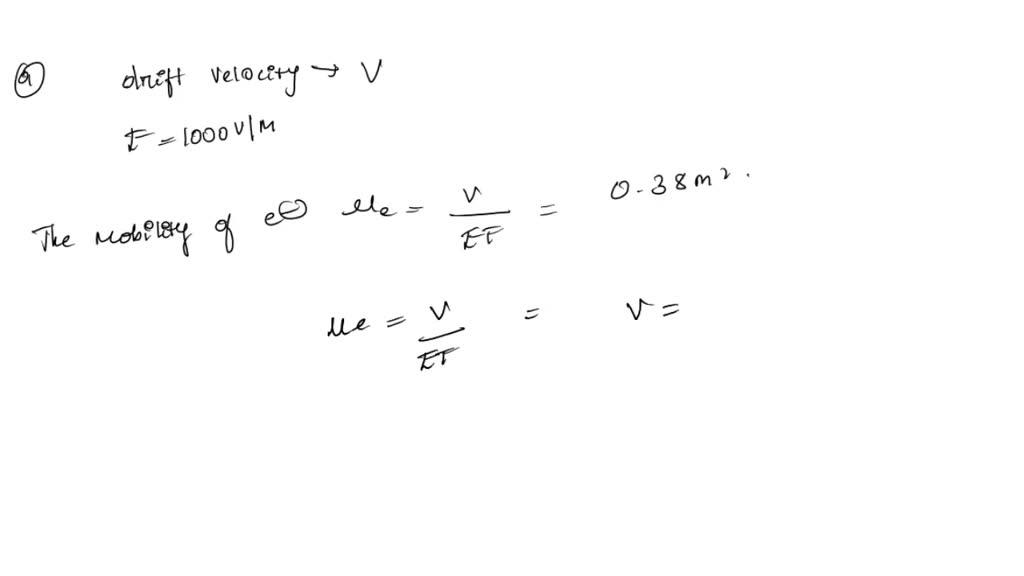 (a) drift velocity → V
E = 1000 V/M
The Mobility of e⊖ μe = V/EF = 0.38 m².
μe = V/EF = V =